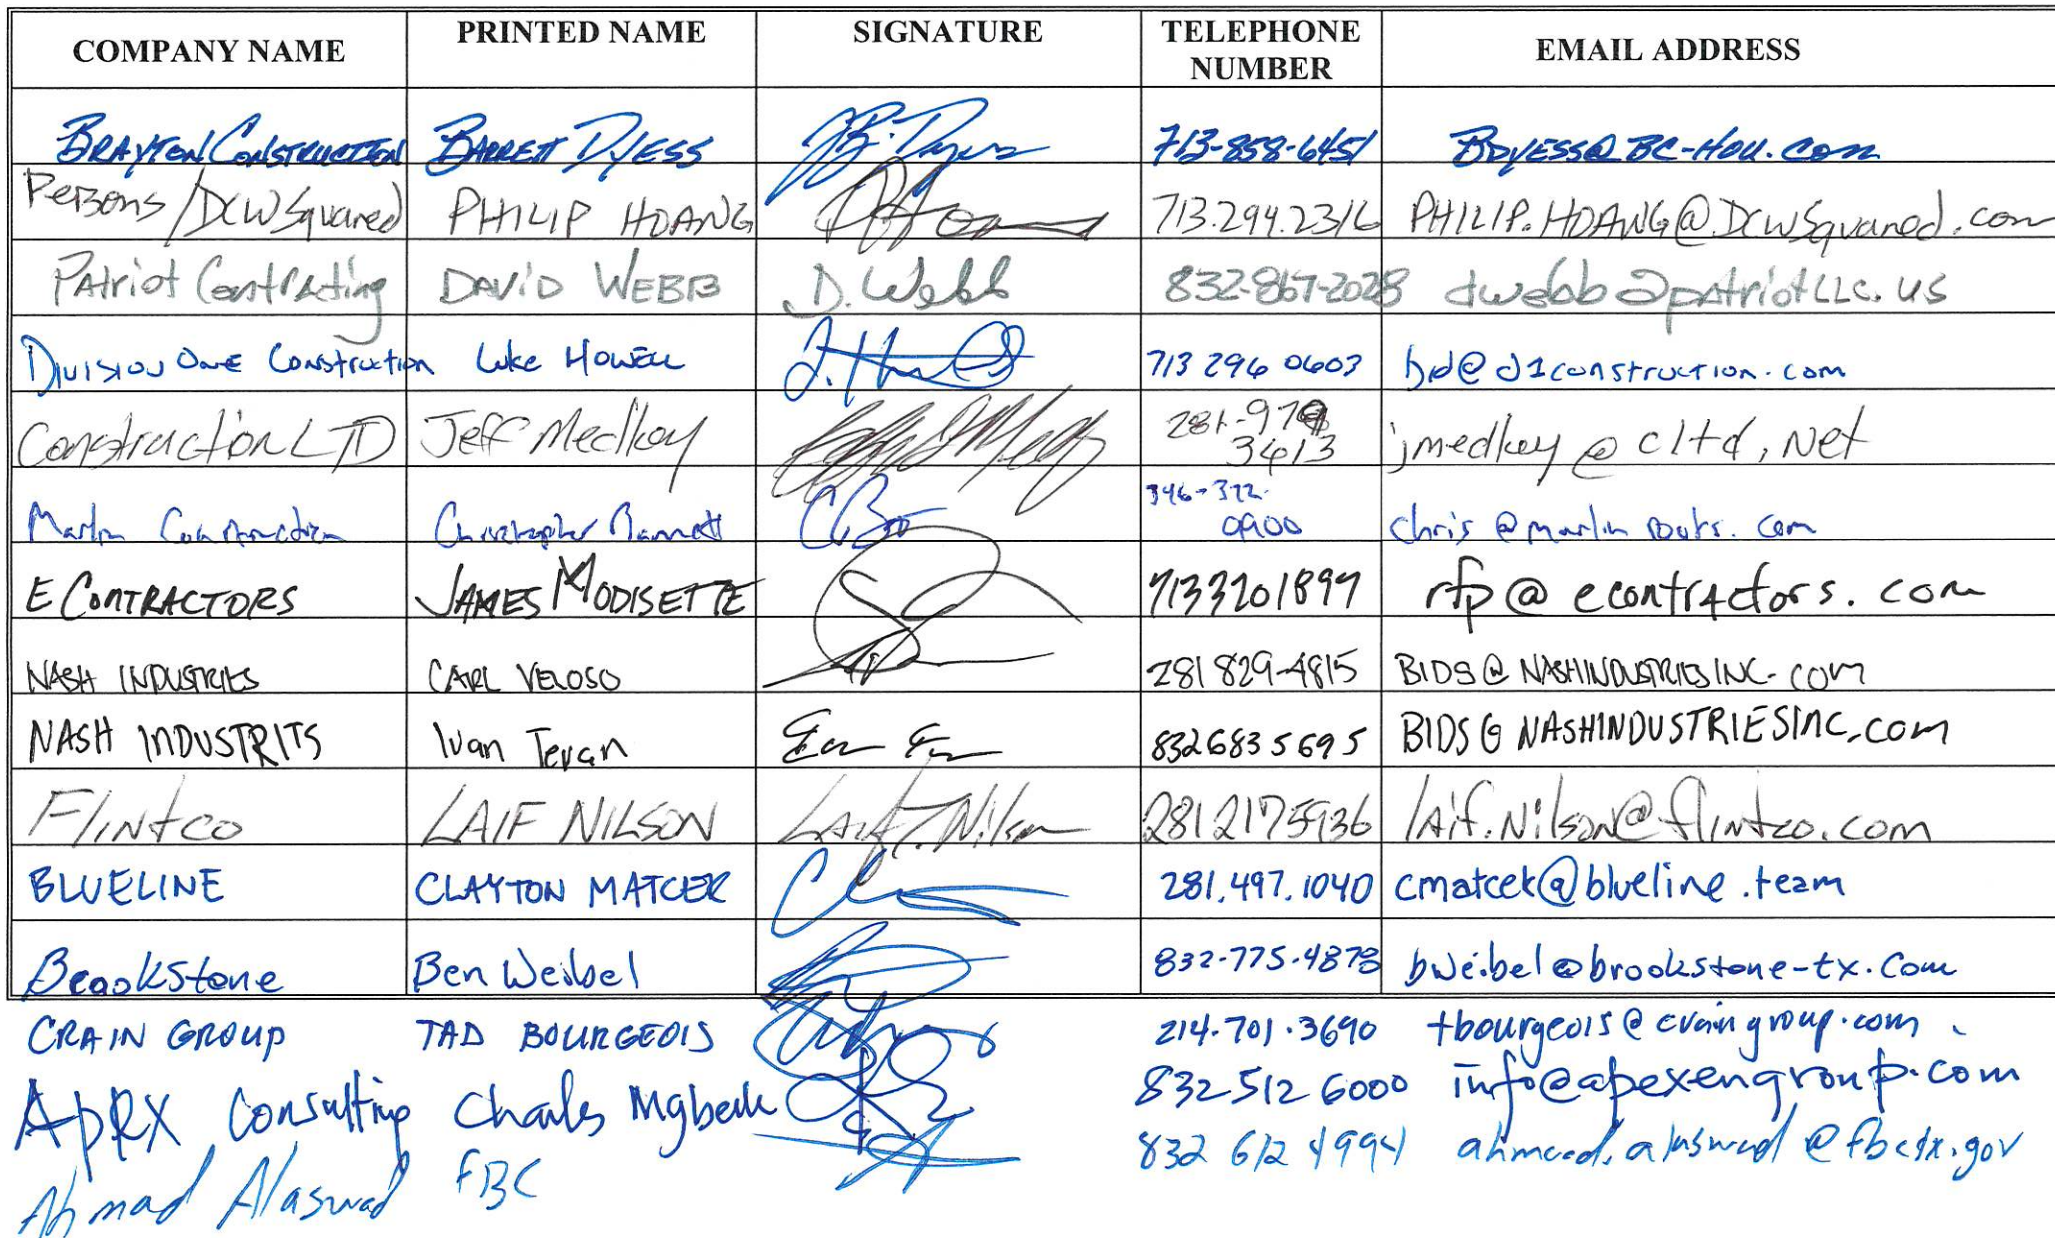 COMPANY NAME PRINTED NAME SIGNATURE TELEPHONE NUMBER EMAIL ADDRESS
BRAYTON CONSTRUCTION BARRETT DYESS 713-858-6451 BDYESS@BC-HOU.COM
Persons/DCW Squared PHILIP HOANG 713.294.2316 PHILIP.HOANG@DCWSquared.com
Patriot Contracting DAVID WEBB D. Webb 832-867-2028 dwebb@patriotLLC.us
Division One Construction Luke Howell 713 296 0603 bid@d1construction.com
Construction LTD Jeff Medkey 281-978 3413 jmedkey@cltd,Net
Marlin Construction Christopher 346-322- 0900 chris@marlin .com
E CONTRACTORS JAMES MODISETTE 7133201897 rfp@econtractors.com
NASH INDUSTRIES CARL VELOSO 281 829-4815 BIDS@NASHINDUSTRIESINC.COM
NASH INDUSTRITS Ivan Teran 8326835695 BIDS@NASHINDUSTRIESINC.COM
Flintco LAIF NILSON Laif T. Nilson 2812175936 laif.Nilson@flintco.com
BLUELINE CLAYTON MATCEK 281.497.1040 cmatcek@blueline.team
Brookstone Ben Weibel 832-775-4878 bweibel@brookstone-tx.com
CRAIN GROUP TAD BOURGEOIS 214.701.3690 tbourgeois@craingroup.com
Apex Consulting Charles 832 512 6000 info@apexengroup.com
Ahmad Alaswad FBC 832 612 4994 ahmad.alaswad@fbctx.gov